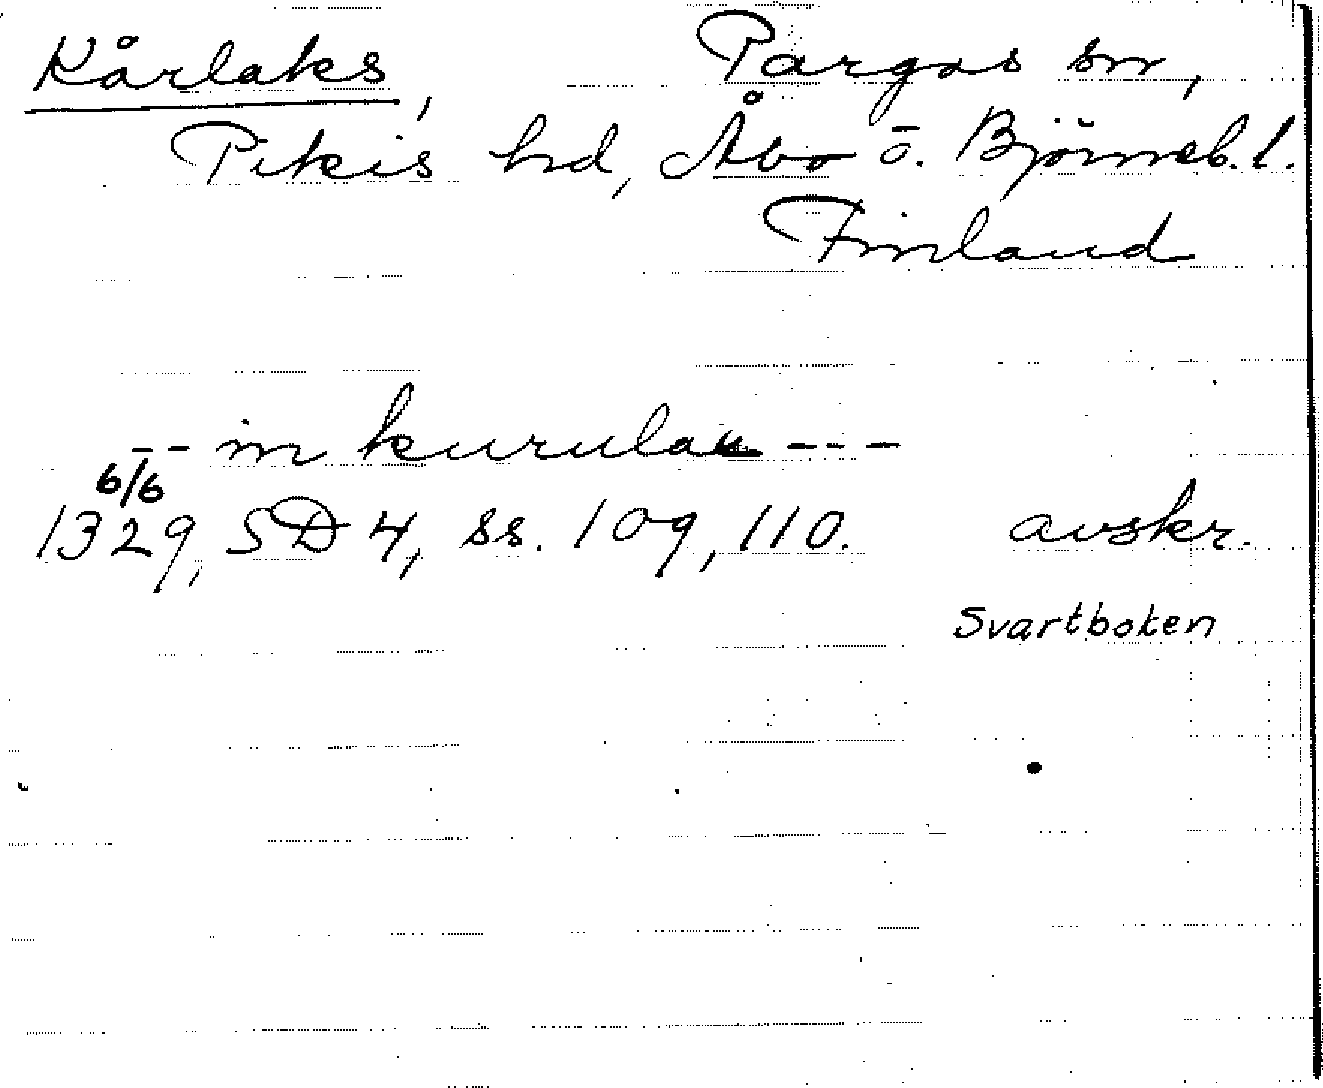 Kårlaks, Pargas sn,
Pikis hd, Åbo o. Björneb. l.
Finland
-- in kurulax ---
6/6
1329, SD 4, ss. 109, 110. avskr.
Svartboken